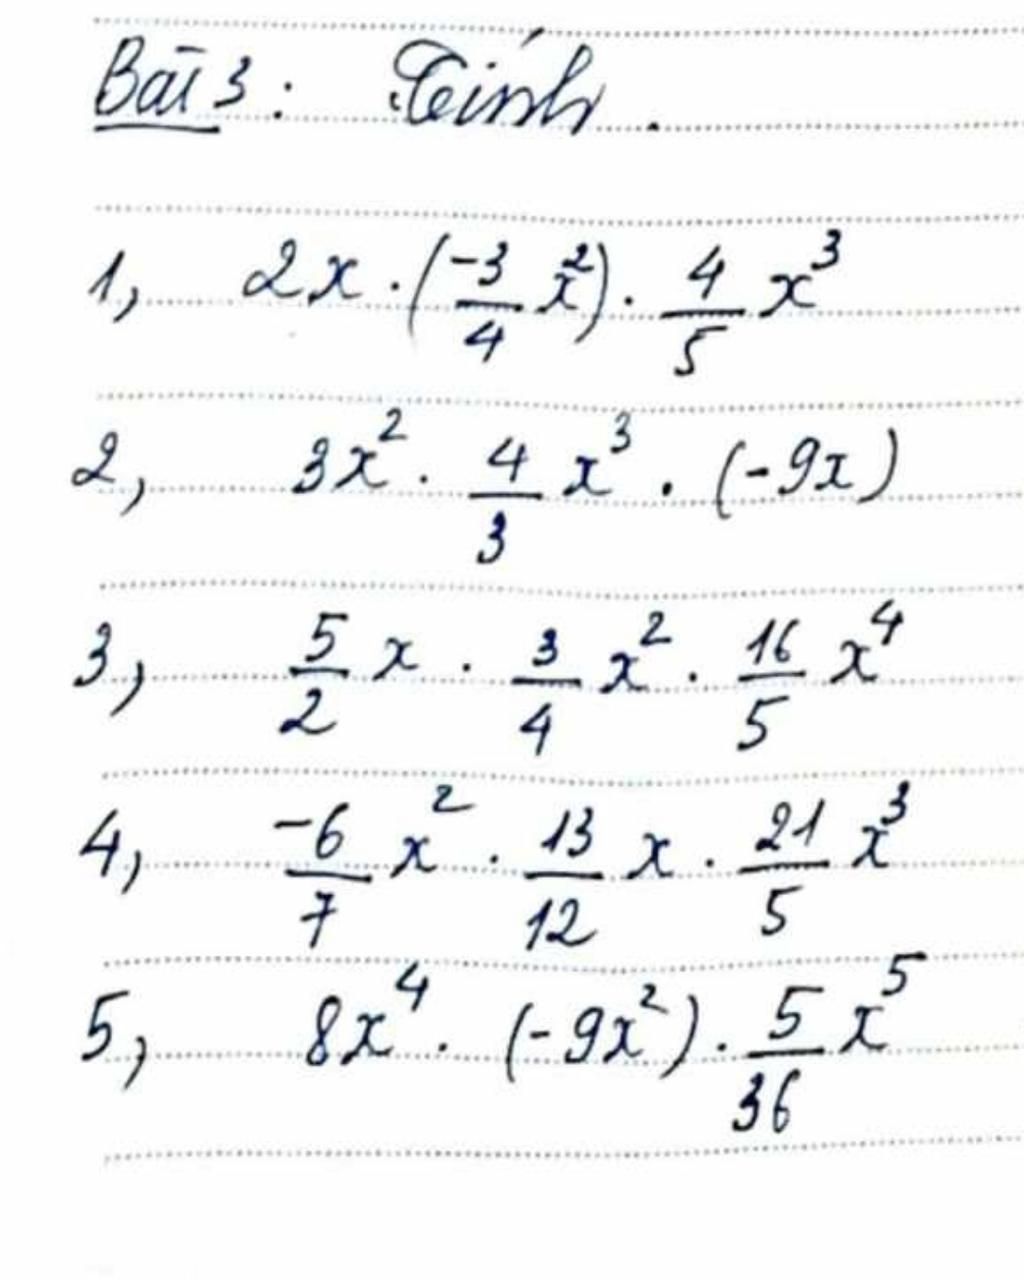 Bài 3: Tính.
1, 2x . (-3/4 x²) . 4/5 x³
2, 3x² . 4/3 x³ . (-9x)
3, 5/2 x . 3/4 x² . 16/5 x⁴
4, -6/7 x² . 13/12 x . 21/5 x³
5, 8x⁴ . (-9x²) . 5/36 x⁵